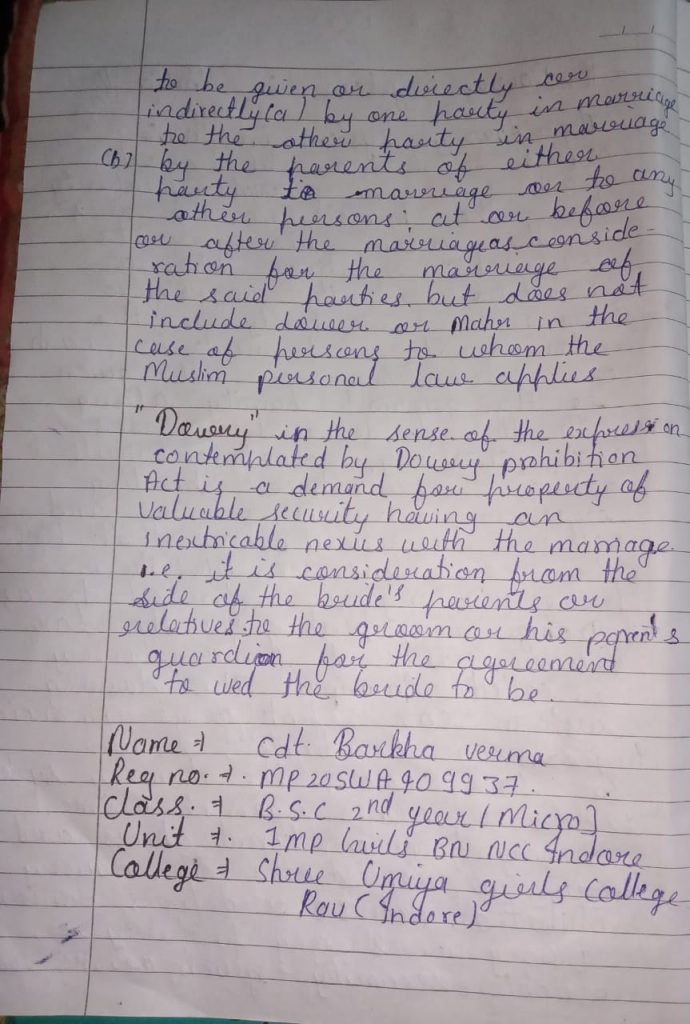 to be given or directly or
indirectly (a) by one party in marriage
to the other party in marriage
(b) by the parents of either
party to marriage or to any
other persons; at or before
or after the marriage as conside-
ration for the marriage of
the said parties. but does not
include dower or Mahr in the
case of persons to whom the
Muslim personal law applies
"Dowery" in the sense of the expression
contemplated by Dowery prohibition
Act is a demand for property of
valuable security having an
inextricable nexus with the marriage.
i.e. it is consideration from the
side of the bride's parents or
relatives to the groom or his parent's
guardian for the agreement
to wed the bride to be.
Name ⇒ Cdt. Barkha verma
Reg no. ⇒. MP20SWA409937.
Class. ⇒ B.S.C 2nd year [Micro]
Unit ⇒. 1 MP Girls BN NCC Indore
College ⇒ Shree Umiya girls College
Rau (Indore)